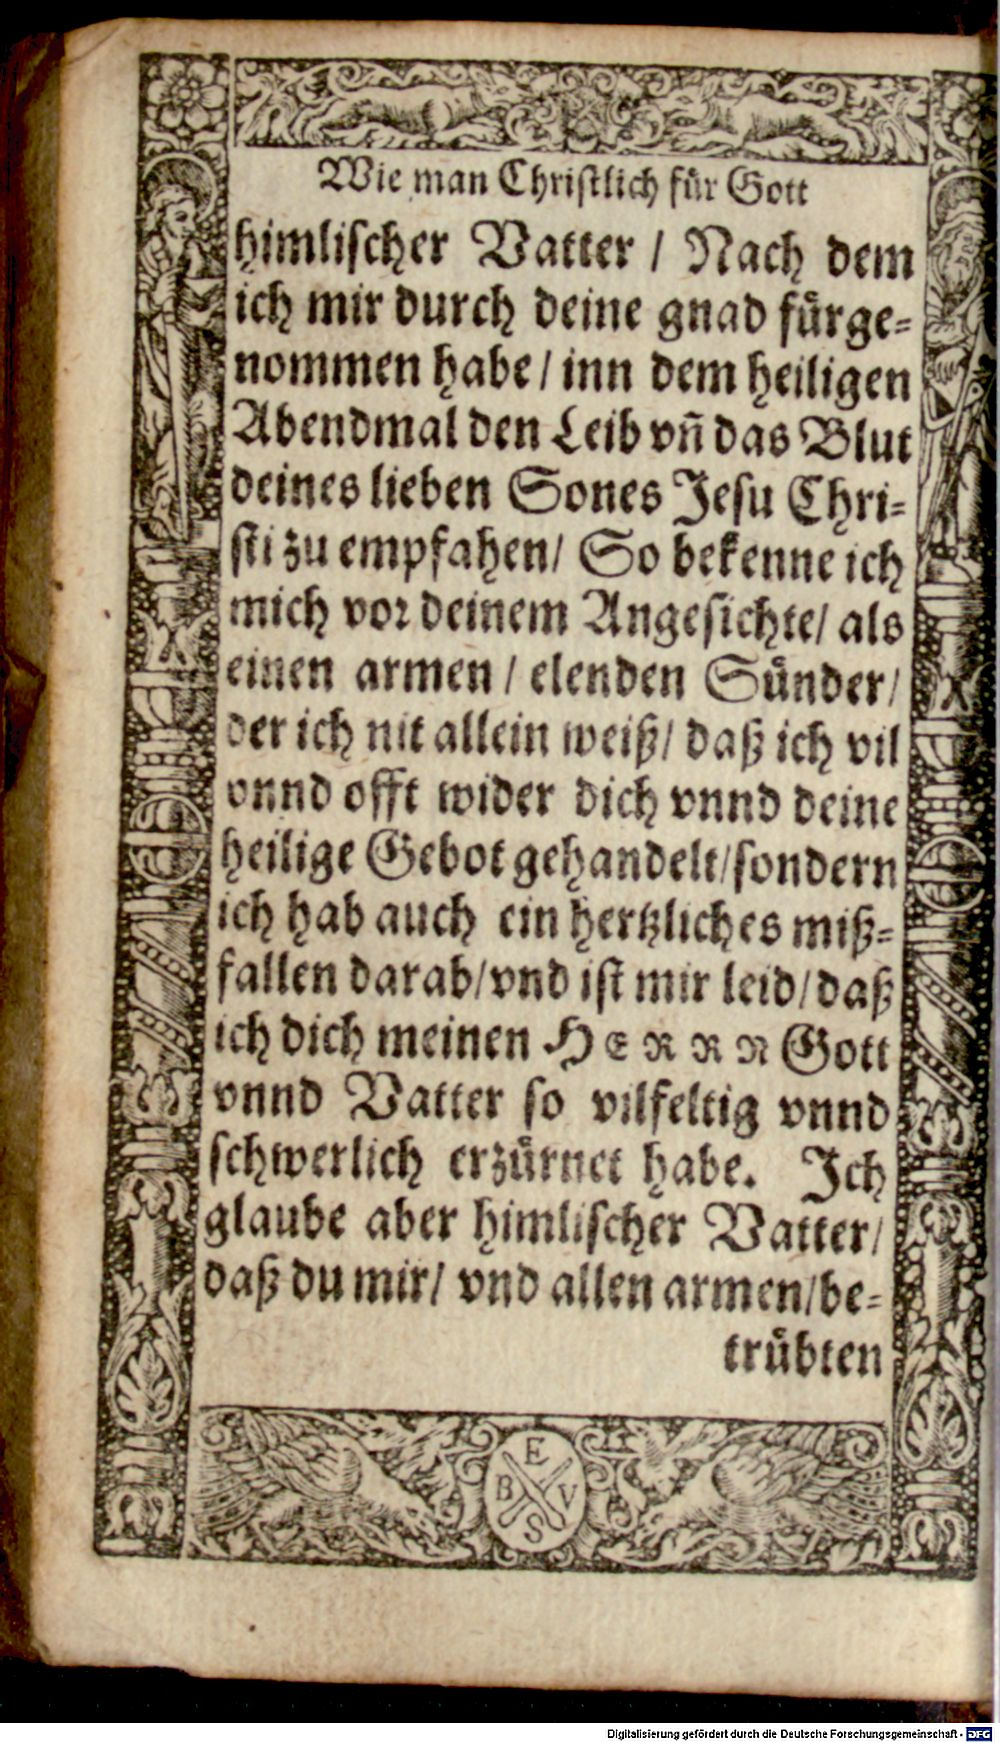 Wie man Christlich für Gott
himlischer Vatter / Nach dem
ich mir durch deine gnad fürge⸗
nommen habe / inn dem heiligen
Abendmal den Leib vñ das Blut
deines lieben Sones Jesu Chri⸗
sti zu empfahen / So bekenne ich
mich vor deinem Angesichte / als
einen armen / elenden Sünder /
der ich nit allein weiß / daß ich vil
vnnd offt wider dich vnnd deine
heilige Gebot gehandelt / sondern
ich hab auch ein hertzliches miß⸗
fallen darab / vnd ist mir leid / daß
ich dich meinen HERRN Gott
vnnd Vatter so vilfeltig vnnd
schwerlich erzürnet habe. Ich
glaube aber himlischer Vatter /
daß du mir / vnd allen armen / be⸗
trübten
E
B V
S
Digitalisierung gefördert durch die Deutsche Forschungsgemeinschaft - DFG